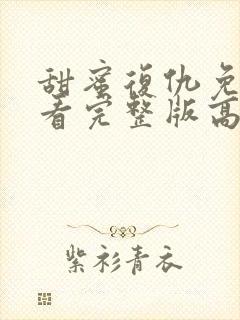 甜蜜復仇免
看完整版高
紫衫青衣